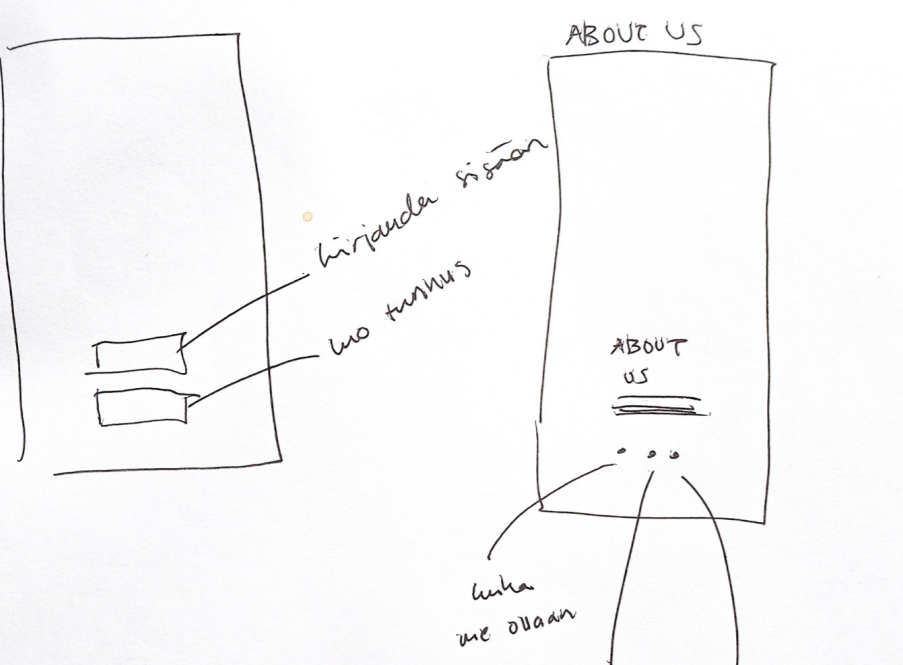 ABOUT US
kirjaudu sisään
luo tunnus
ABOUT
US
kuka
me ollaan